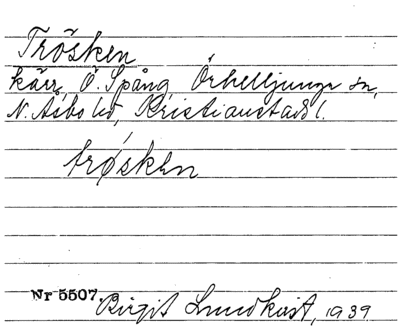 Trösken
kärr, Ö. Spång, Örkelljunga sn,
N. Åsbo hd, Kristianstads l.
trøsken
Nr 5507. Birgit Lundkvist, 1939